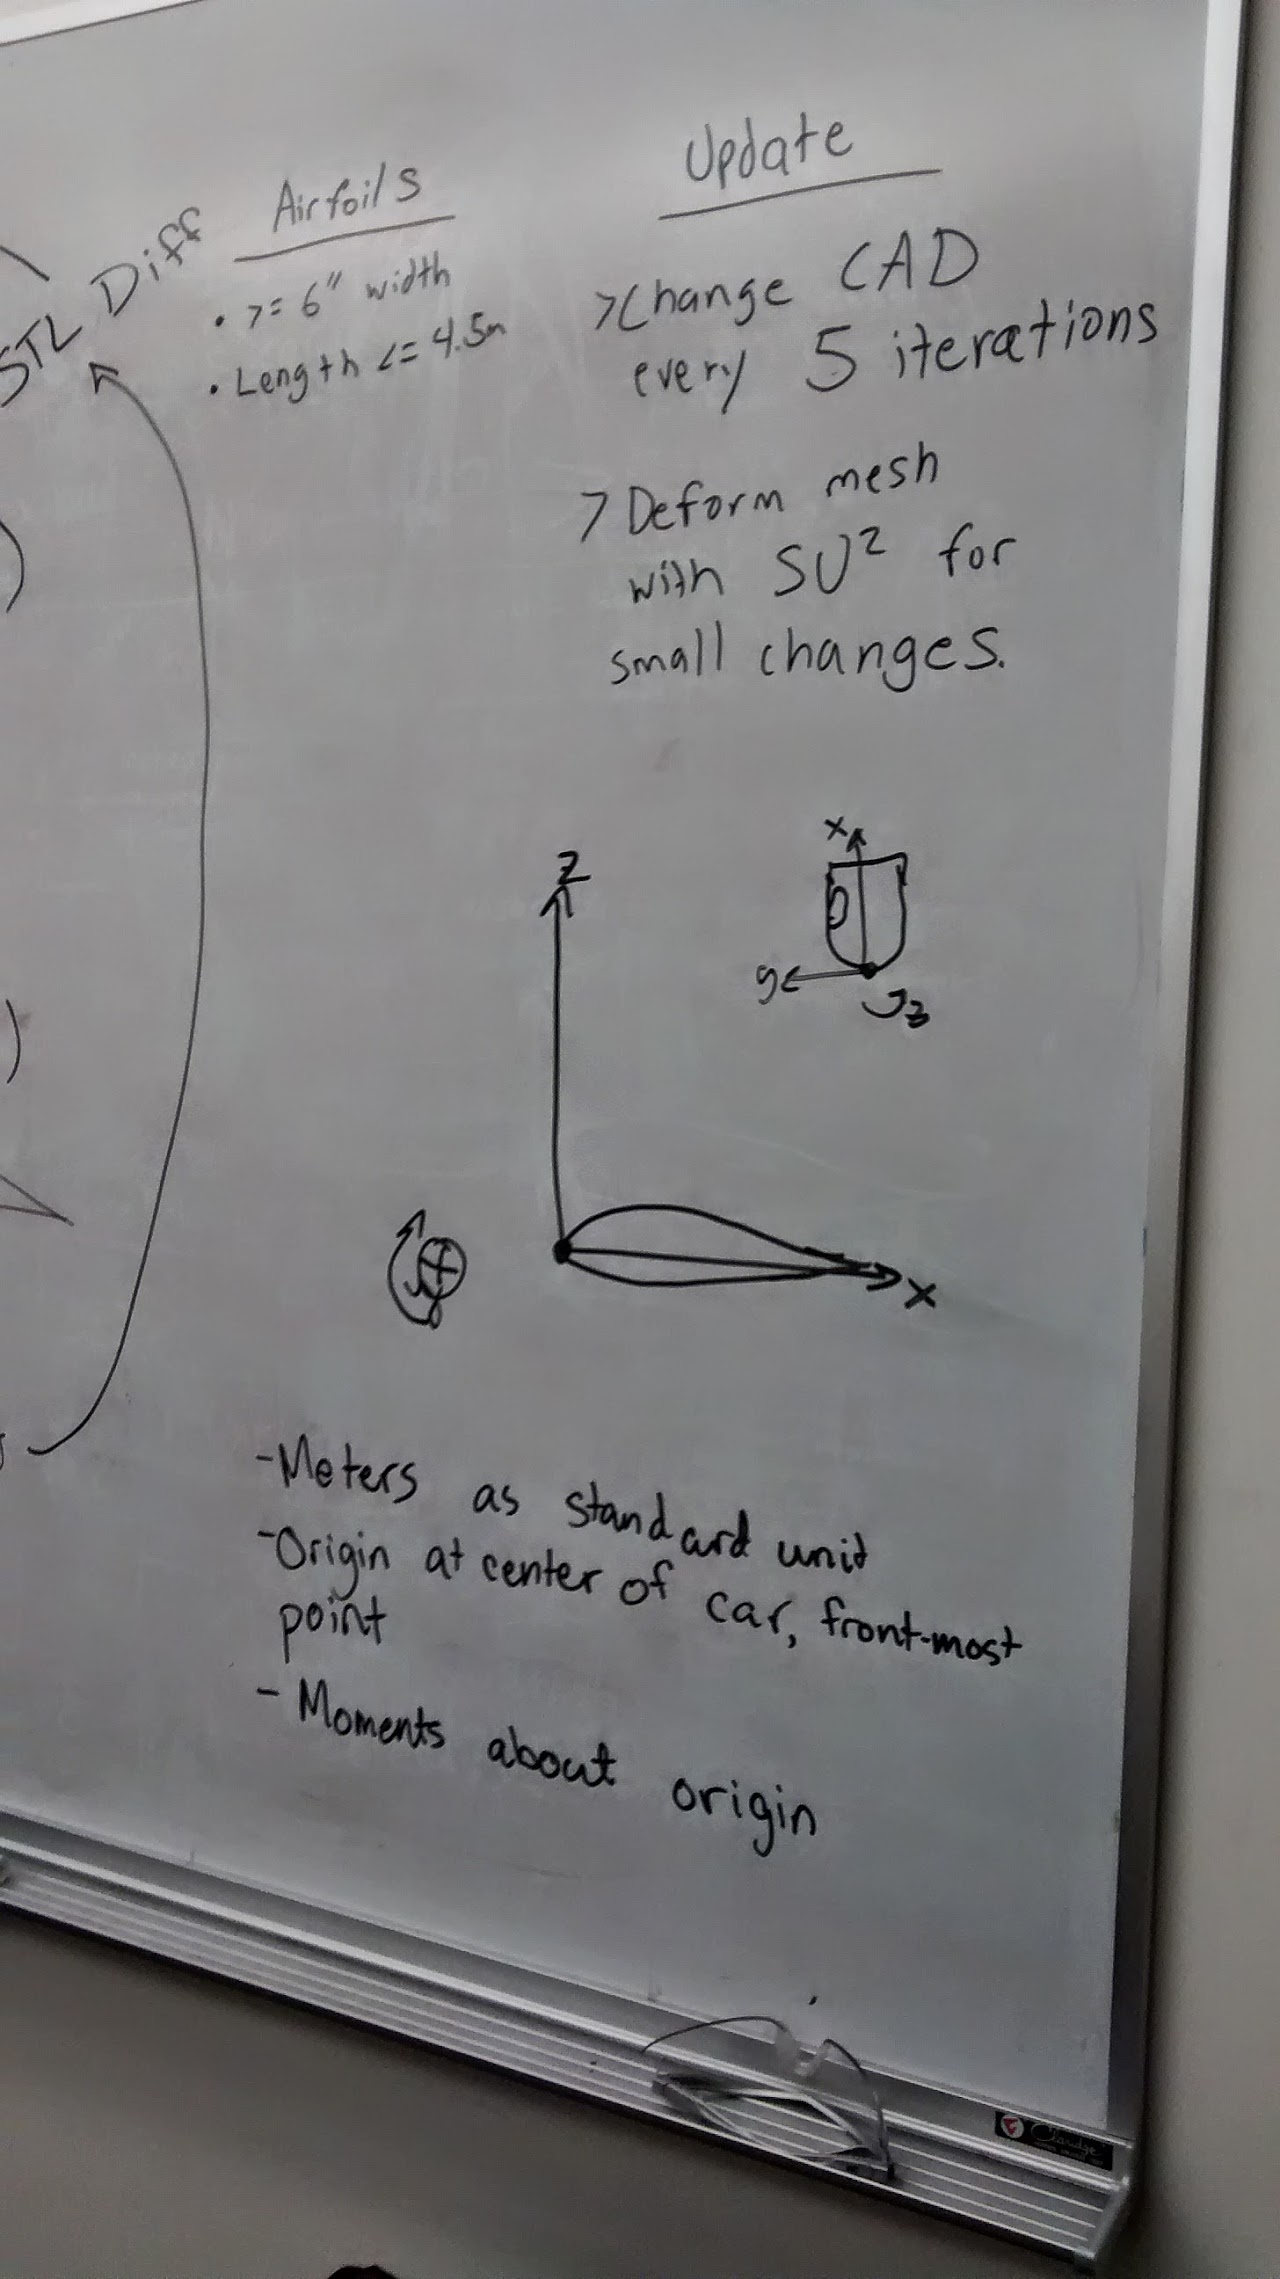 STL Diff
Airfoils
• >= 6" width
• Length <= 4.5m
Update
>Change CAD
every 5 iterations
> Deform mesh
with SU² for
small changes.
x
y
z
z
x
-Meters as standard unit
-Origin at center of car, front-most
point
- Moments about origin
Claridge